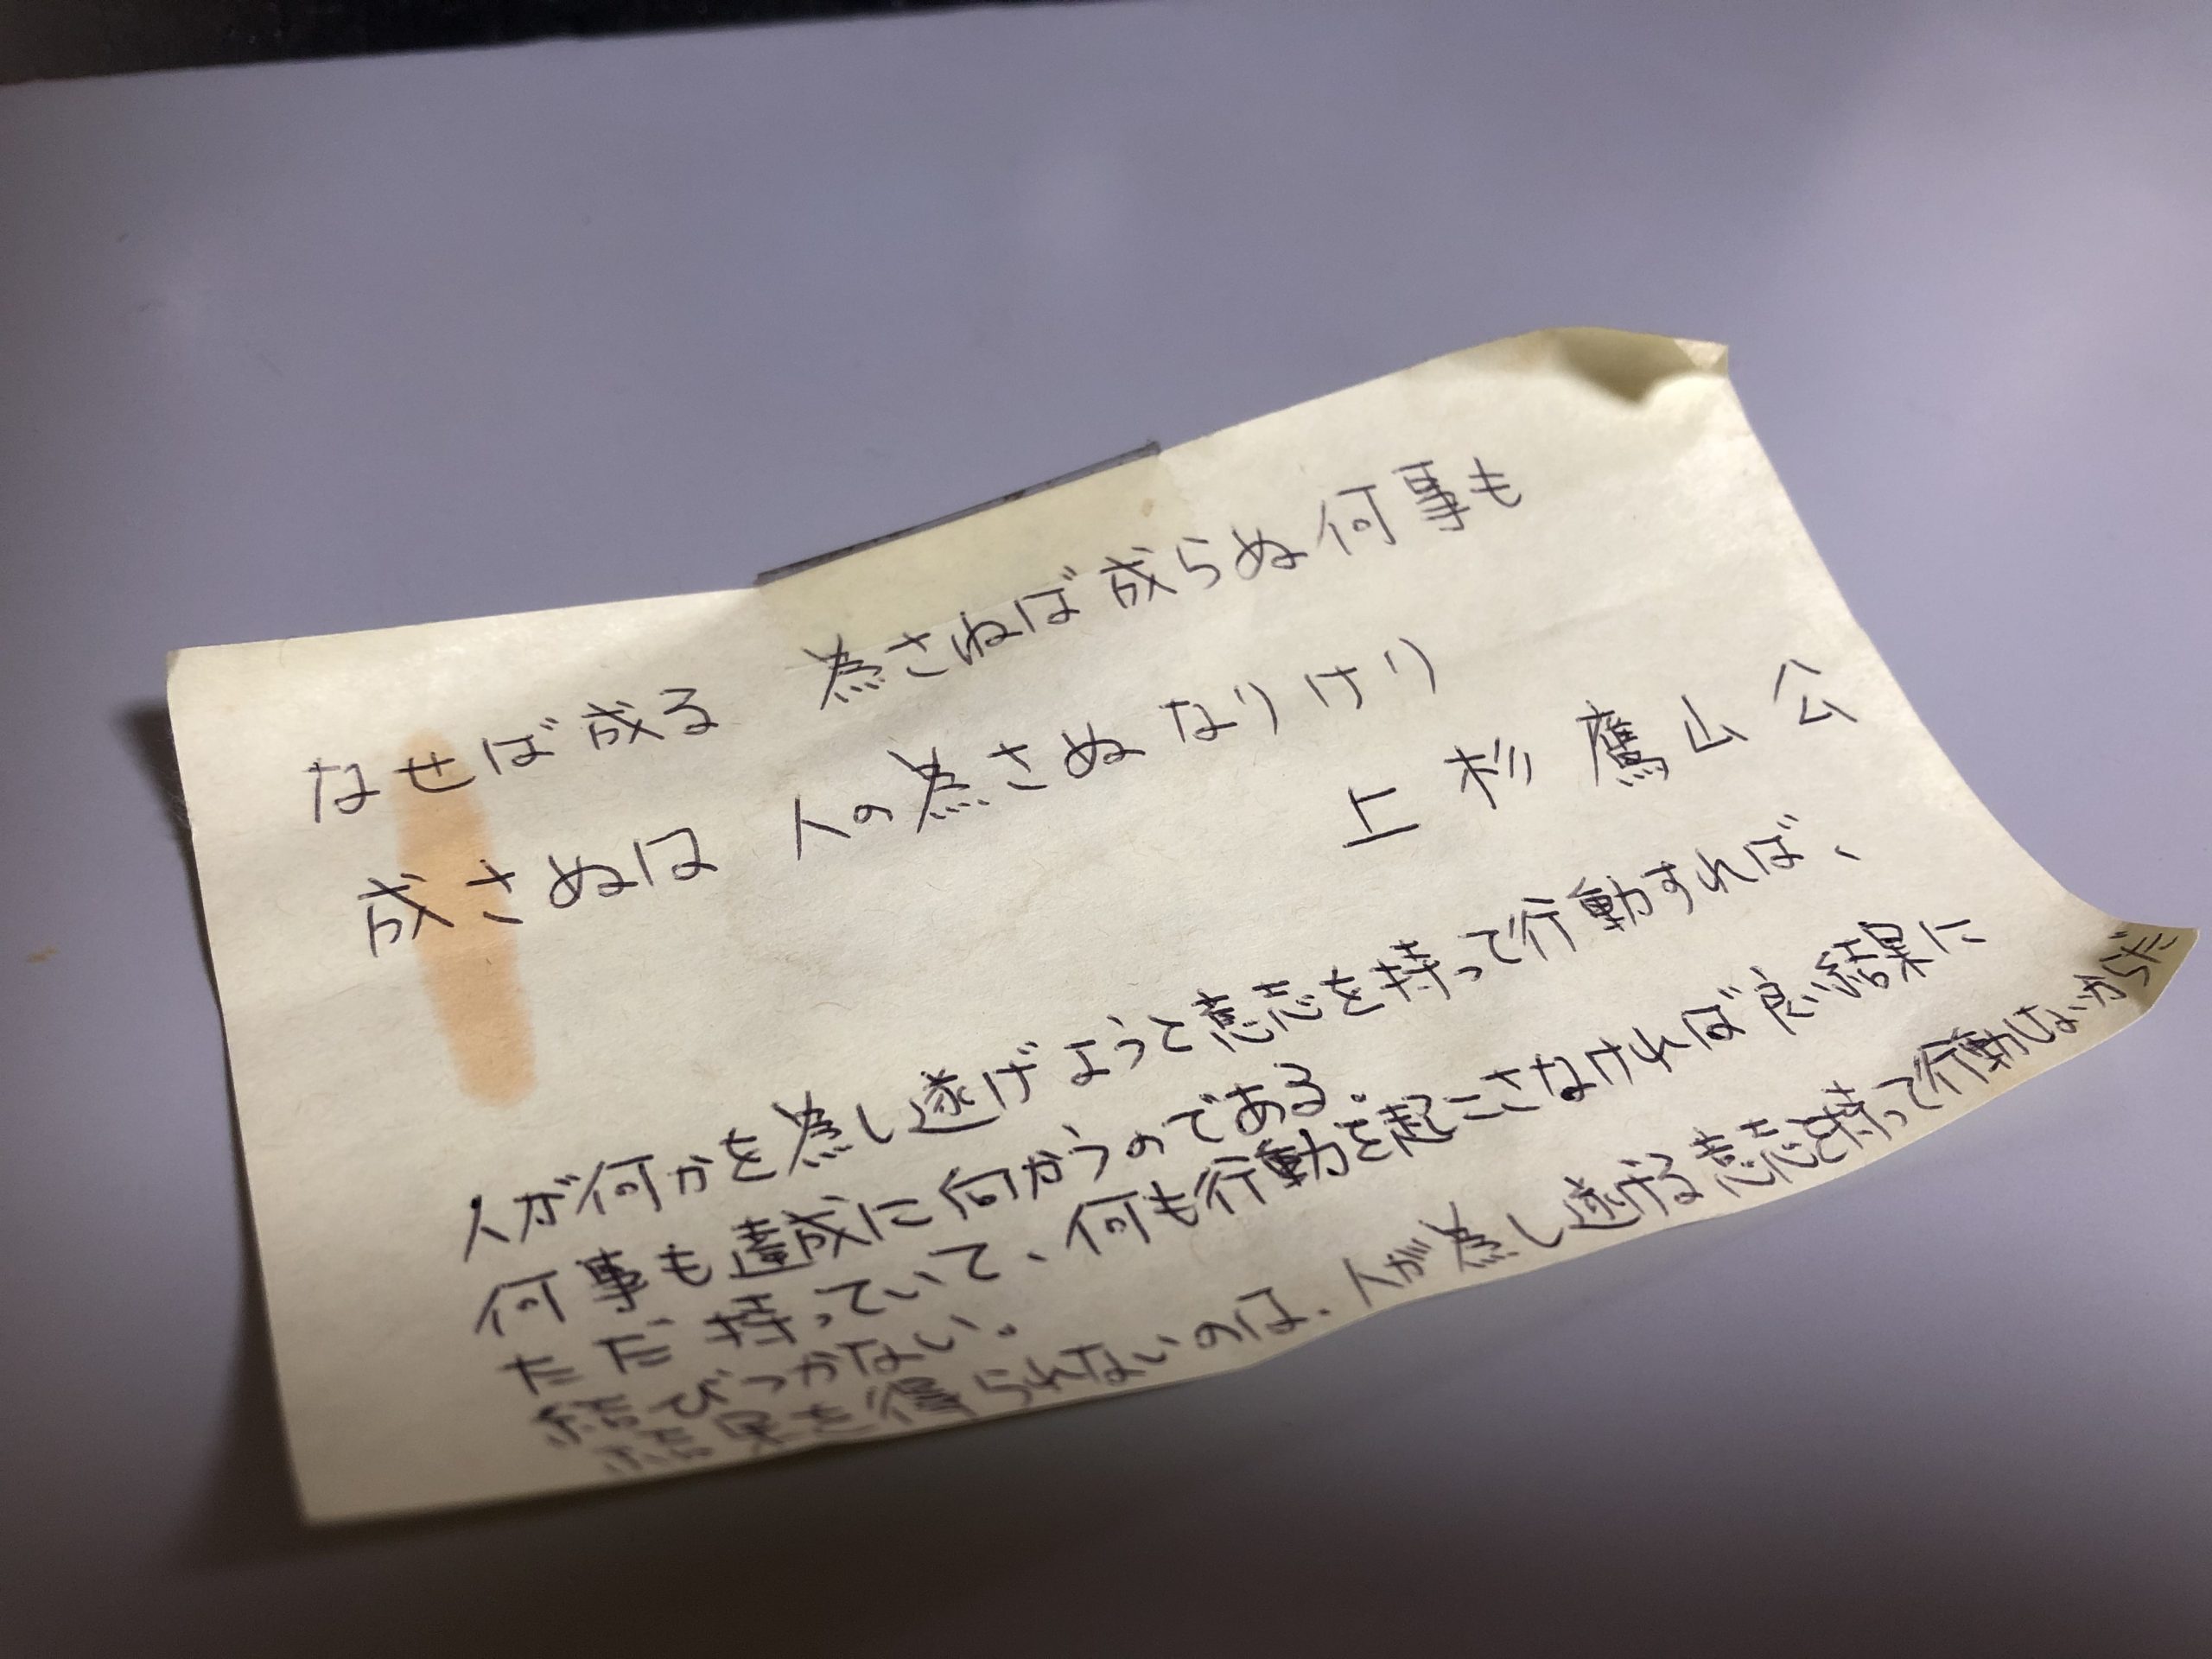 なせば成る 為さねば成らぬ何事も
成さぬは 人の為さぬなりけり
上杉鷹山公
人が何かを為し遂げようと意志を持って行動すれば、
何事も達成に向かうのである。
ただ持っていて、何も行動を起こさなければ良い結果に
結びつかない。
結果を得られないのは、人が為し遂げる意志を持って行動しないからだ